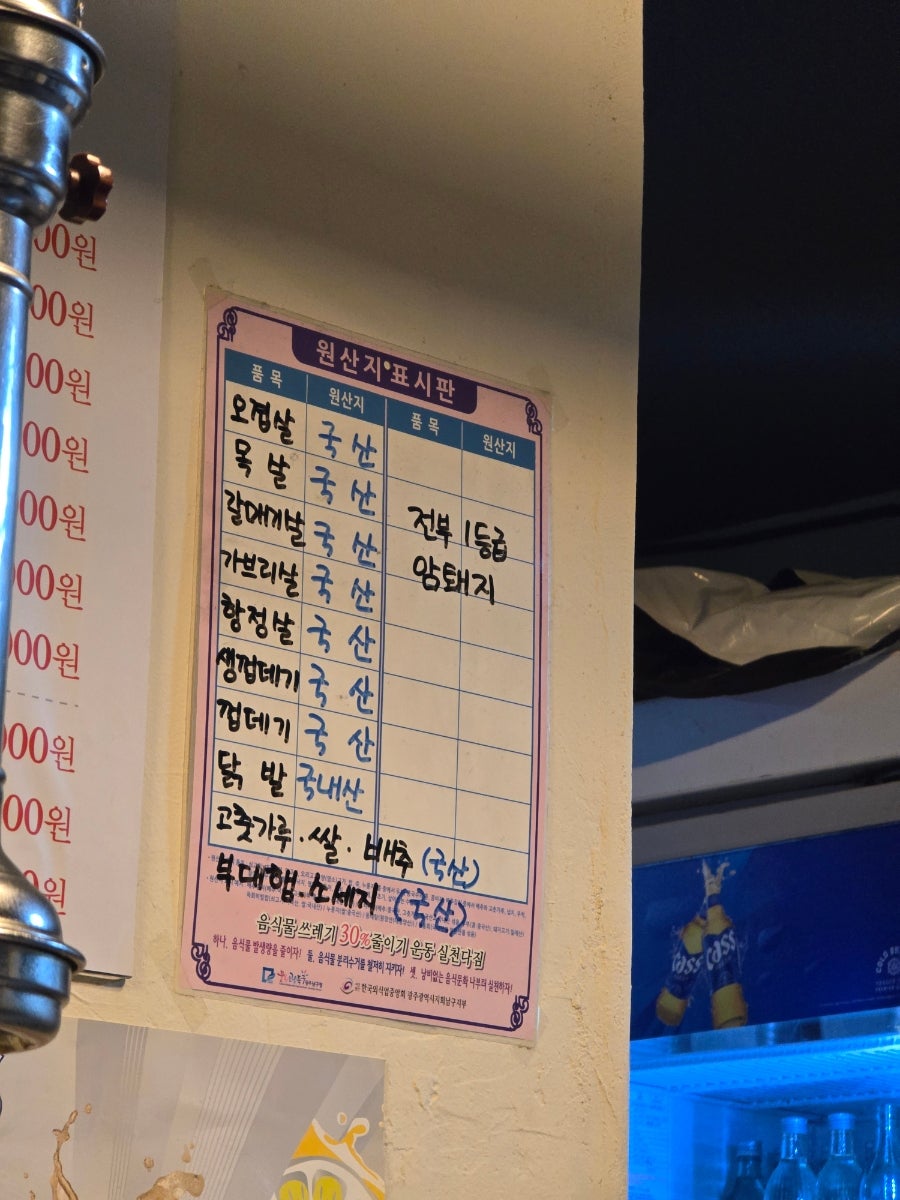 00원
00원
00원
00원
000원
000원
000원
000원
000원
원산지 표시판
품목 원산지 품목 원산지
오겹살 국산
목살 국산
갈매기살 국산
가브리살 국산
항정살 국산
생껍데기 국산
껍데기 국산
닭발 국내산
전부 1등급
암퇘지
고춧가루 . 쌀 . 배추 (국산)
부대햄 . 소세지 (국산)
음식물 쓰레기 30%줄이기 운동 실천다짐
하나, 음식물 발생량을 줄이자! 둘, 음식물 분리수거를 철저히 지키자! 셋, 낭비없는 음식문화 나부터 실천하자!
한국외식업중앙회 광주광역시지회남구지부
Cass Cass